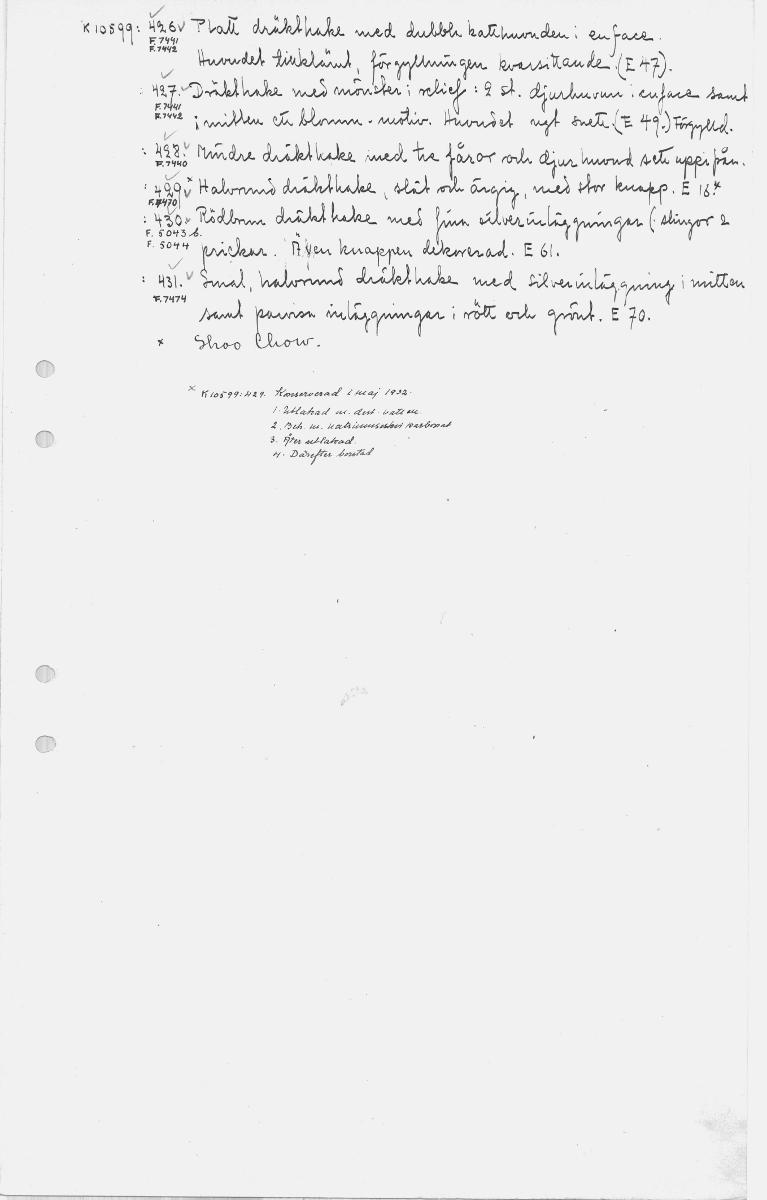 K 10599: 426 v Platt dräkthake med dubbla katthuvuden i enface.
F.7441
F.7442
Huvudet tillklämt, förgyllningen kvarsittande (E 47).
: 427. v Dräkthake med mönster i relief: 2 st. djurhuvun i enface samt
F.7441
F.7442
i mitten ett blomm-motiv. Huvudet ngt snett. (E 49.) Förgylld.
: 428. v Mindre dräkthake med tre fåror och djurhuvud sett uppifrån.
F.7440
: 429 v x Halvrund dräkthake, slät och ärgig, med stor knapp. E 18. x
F.7470
: 430 v Rödbrun dräkthake med fina silverinläggningar (: slingor &
F. 5043 b.
F. 5044
prickar. Även knappen dekorerad. E 61.
: 431. v Smal, halvrund dräkthake med silverinläggning i mitten
F.7474
samt inläggningar i rött och grönt. E 70.
x Shoo Chow.
x K 10599:429. Konserverad i maj 1932.
1. Utlakad m. dest. vatten.
2. Beh. m.
3. Åter utlakad.
4. Därefter borstad